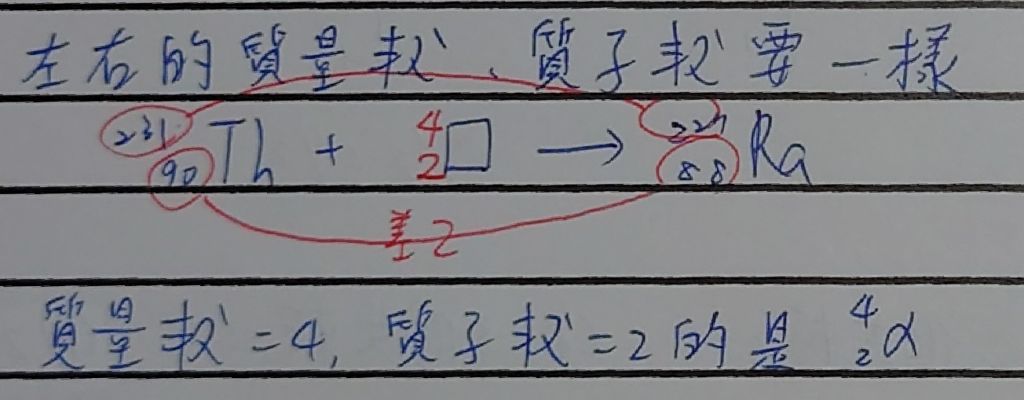 左右的質量數、質子數要一樣
²³¹₉₀Th + ⁴₂□ → ²²⁷₈₈Ra
差2
質量數=4, 質子數=2的是 ⁴₂α